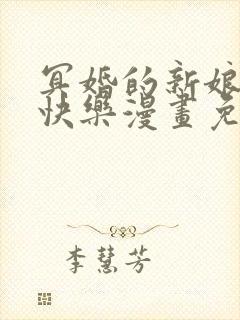 冥婚的新娘
快樂漫畫免
李慧芳